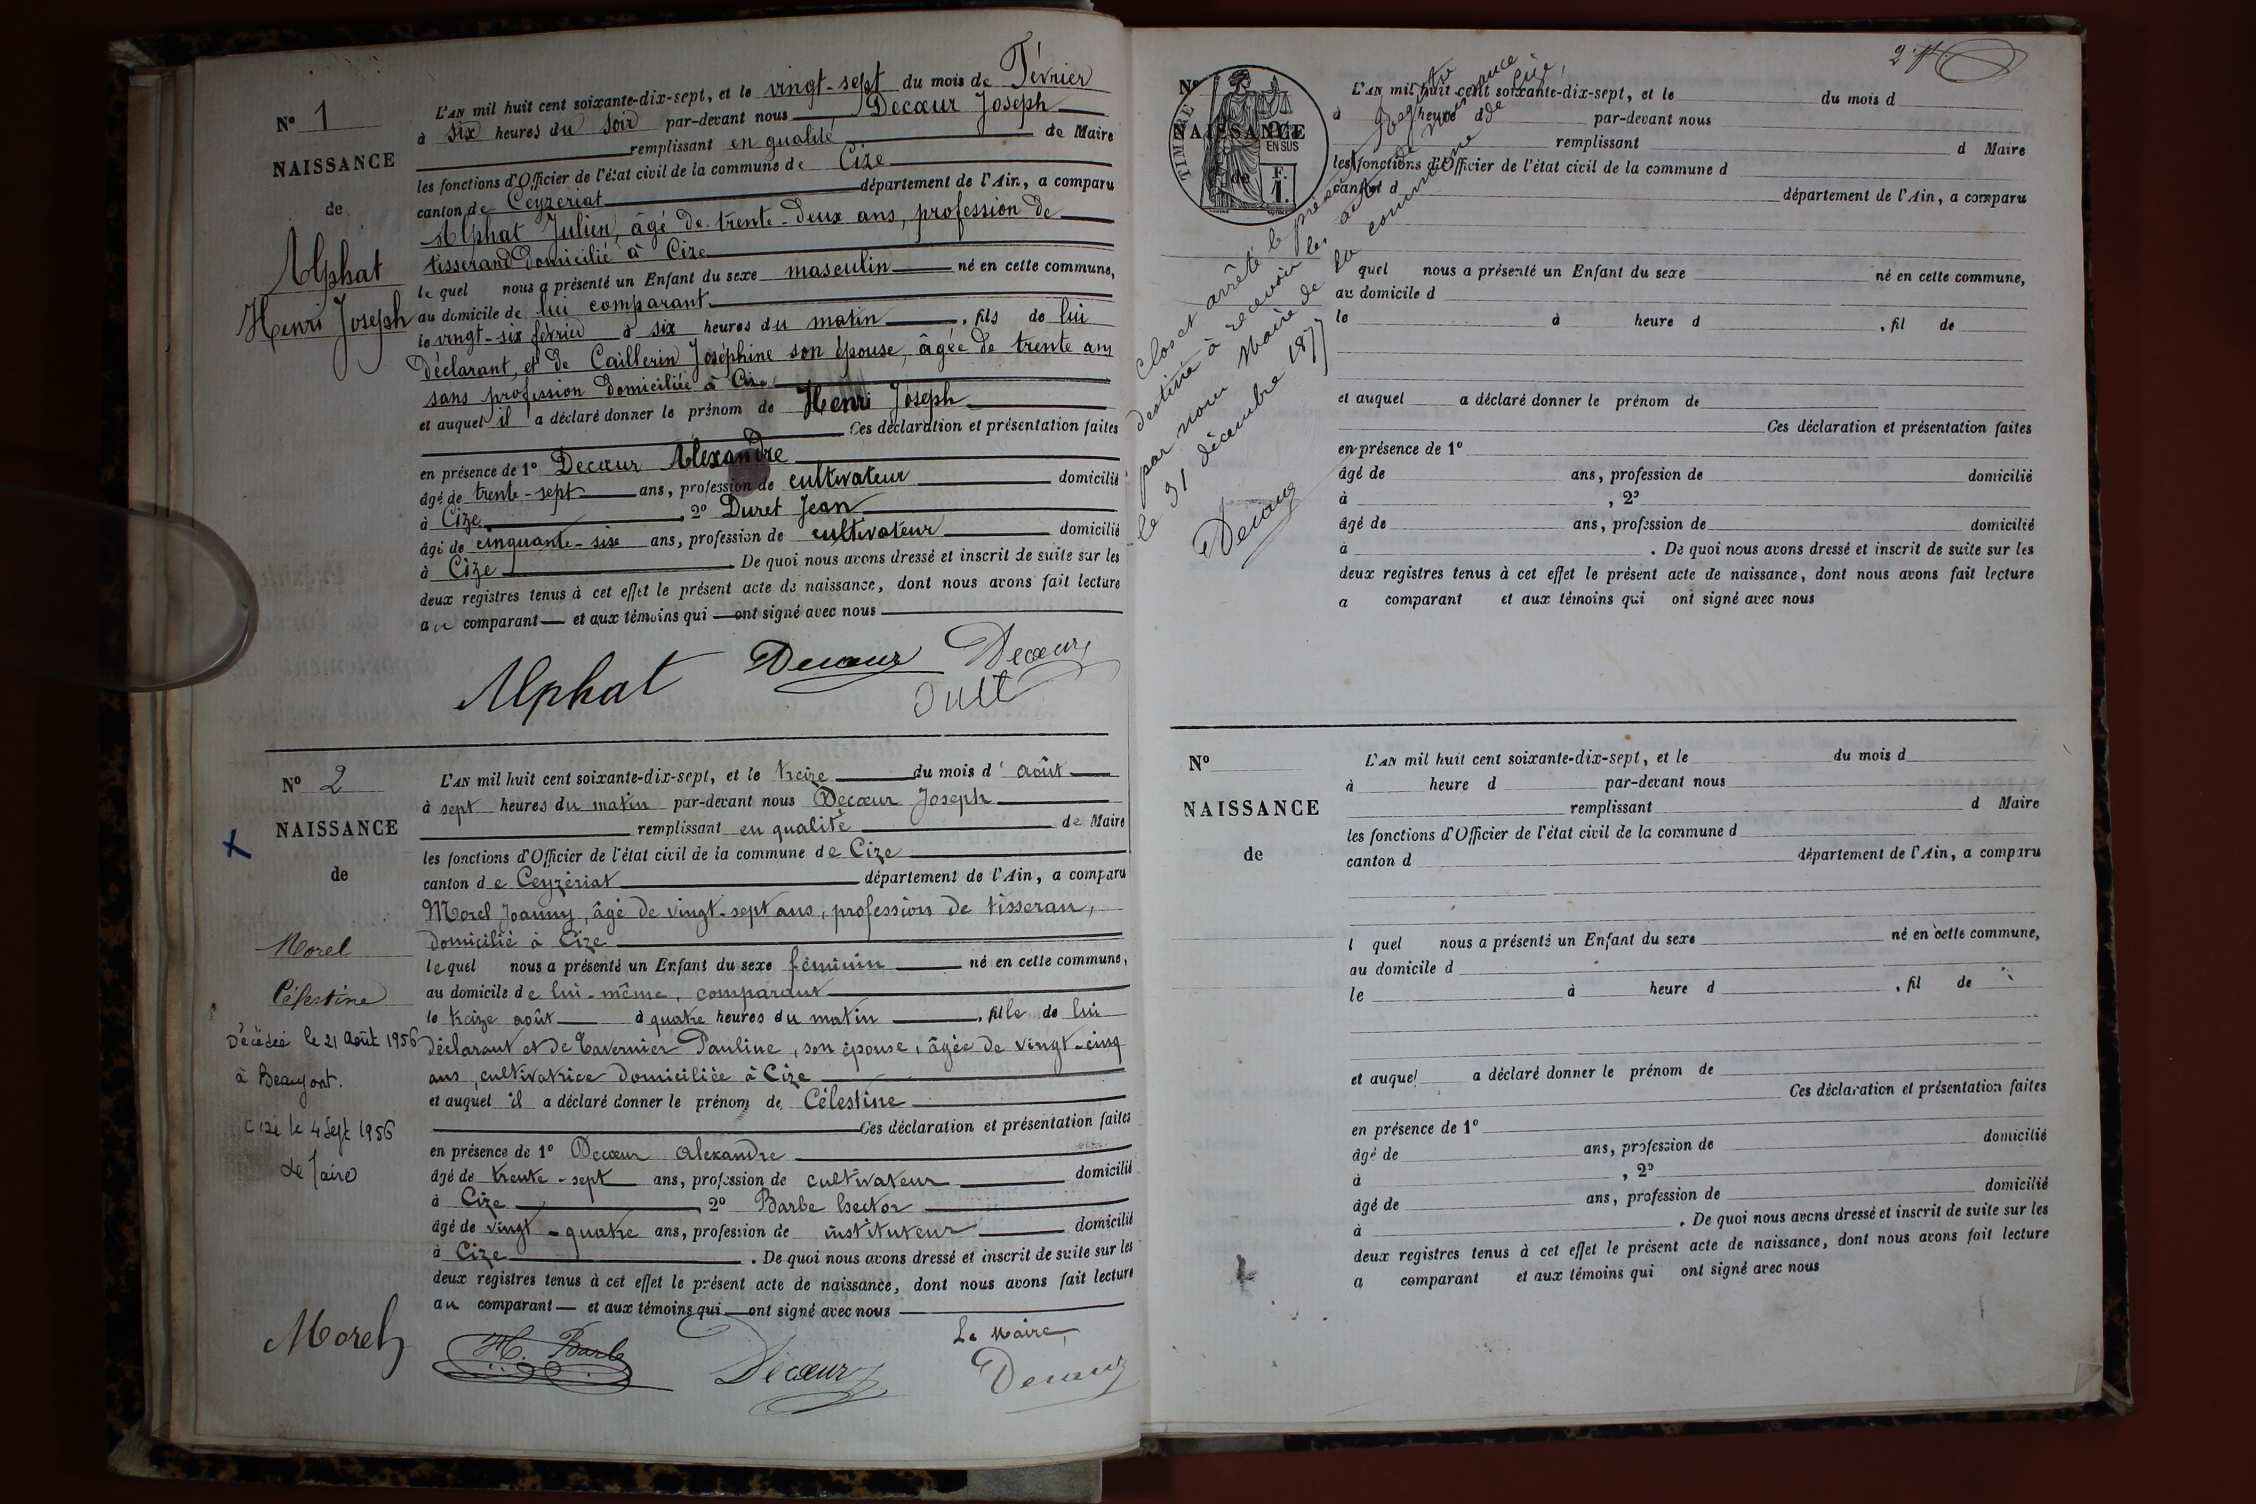 N° 1
NAISSANCE
de
Alphat
Henri Joseph
L'AN mil huit cent soixante-dix-sept, et le vingt-sept du mois de Février
à six heures du soir par-devant nous Decœur Joseph
remplissant en qualité de Maire
les fonctions d'Officier de l'état civil de la commune de Cize
canton de Ceyzériat département de l'Ain, a comparu
Alphat Julien, âgé de trente-deux ans, profession de
tisserand domicilié à Cize
le quel nous a présenté un Enfant du sexe masculin né en cette commune,
au domicile de lui comparant
le vingt-six février à six heures du matin, fils de lui
déclarant, et de Caillerin Joséphine son épouse, âgée de trente ans
sans profession domiciliée à Cize
et auquel il a déclaré donner le prénom de Henri Joseph
Ces déclaration et présentation faites
en présence de 1° Decœur Alexandre
âgé de trente-sept ans, profession de cultivateur domicilié
à Cize, 2° Duret Jean
âgé de cinquante-six ans, profession de cultivateur domicilié
à Cize De quoi nous avons dressé et inscrit de suite sur les
deux registres tenus à cet effet le présent acte de naissance, dont nous avons fait lecture
au comparant et aux témoins qui ont signé avec nous
Alphat Decœur Decœur
N° 2
NAISSANCE
de
Morel
Célestine
Décédée le 21 Août 1956
à Beaupont.
Cize le 4 Sept 1956
Le Maire
L'AN mil huit cent soixante-dix-sept, et le treize du mois d'août
à sept heures du matin par-devant nous Decœur Joseph
remplissant en qualité de Maire
les fonctions d'Officier de l'état civil de la commune de Cize
canton de Ceyzériat département de l'Ain, a comparu
Morel Joanny, âgé de vingt-sept ans, profession de tisseran,
domicilié à Cize
lequel nous a présenté un Enfant du sexe féminin né en cette commune,
au domicile de lui-même, comparant
le treize août à quatre heures du matin, fille de lui
déclarant et de Tavernier Pauline, son épouse, âgée de vingt-cinq
ans, cultivatrice domiciliée à Cize
et auquel il a déclaré donner le prénom de Célestine
Ces déclaration et présentation faites
en présence de 1° Decœur Alexandre
âgé de trente-sept ans, profession de cultivateur domicilié
à Cize, 2° Barbe Hector
âgé de vingt-quatre ans, profession de instituteur domicilié
à Cize. De quoi nous avons dressé et inscrit de suite sur les
deux registres tenus à cet effet le présent acte de naissance, dont nous avons fait lecture
au comparant et aux témoins qui ont signé avec nous
Morel H. Barbe Decœur
Le Maire,
Decœur
N°
NAISSANCE
de
TIMBRE
EN SUS
F.
1.
L'AN mil huit cent soixante-dix-sept, et le du mois d
à heure d par-devant nous
remplissant d Maire
les fonctions d'Officier de l'état civil de la commune d
canton d département de l'Ain, a comparu
quel nous a présenté un Enfant du sexe né en cette commune,
au domicile d
le à heure d, fil de
et auquel a déclaré donner le prénom de
Ces déclaration et présentation faites
en présence de 1°
âgé de ans, profession de domicilié
à, 2°
âgé de ans, profession de domicilié
à. De quoi nous avons dressé et inscrit de suite sur les
deux registres tenus à cet effet le présent acte de naissance, dont nous avons fait lecture
a comparant et aux témoins qui ont signé avec nous
Clos et arrêté le présent Registre
destiné à recevoir les actes de naissance
par nous Maire de la commune de Cize,
le 31 décembre 1877
Decœur
N°
NAISSANCE
de
L'AN mil huit cent soixante-dix-sept, et le du mois d
à heure d par-devant nous
remplissant d Maire
les fonctions d'Officier de l'état civil de la commune d
canton d département de l'Ain, a comparu
l quel nous a présenté un Enfant du sexe né en cette commune,
au domicile d
le à heure d, fil de
et auquel a déclaré donner le prénom de
Ces déclaration et présentation faites
en présence de 1°
âgé de ans, profession de domicilié
à, 2°
âgé de ans, profession de domicilié
à. De quoi nous avons dressé et inscrit de suite sur les
deux registres tenus à cet effet le présent acte de naissance, dont nous avons fait lecture
a comparant et aux témoins qui ont signé avec nous